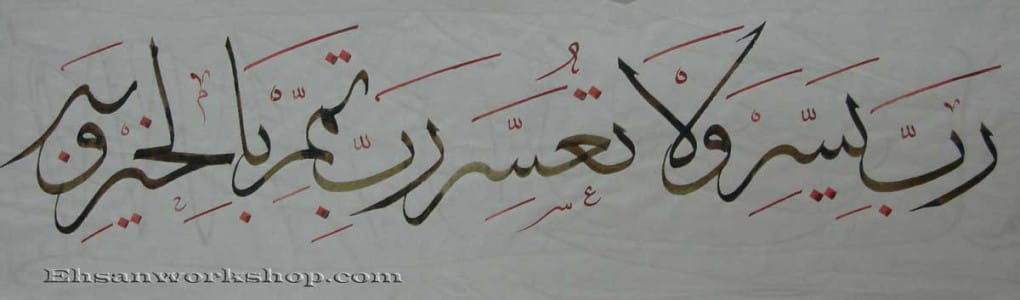 رَبِّ يَسِّرْ وَلَا تُعَسِّرْ رَبِّ تَمِّمْ بِالْخَيْرِ وَبِهِ
Ehsanworkshop.com